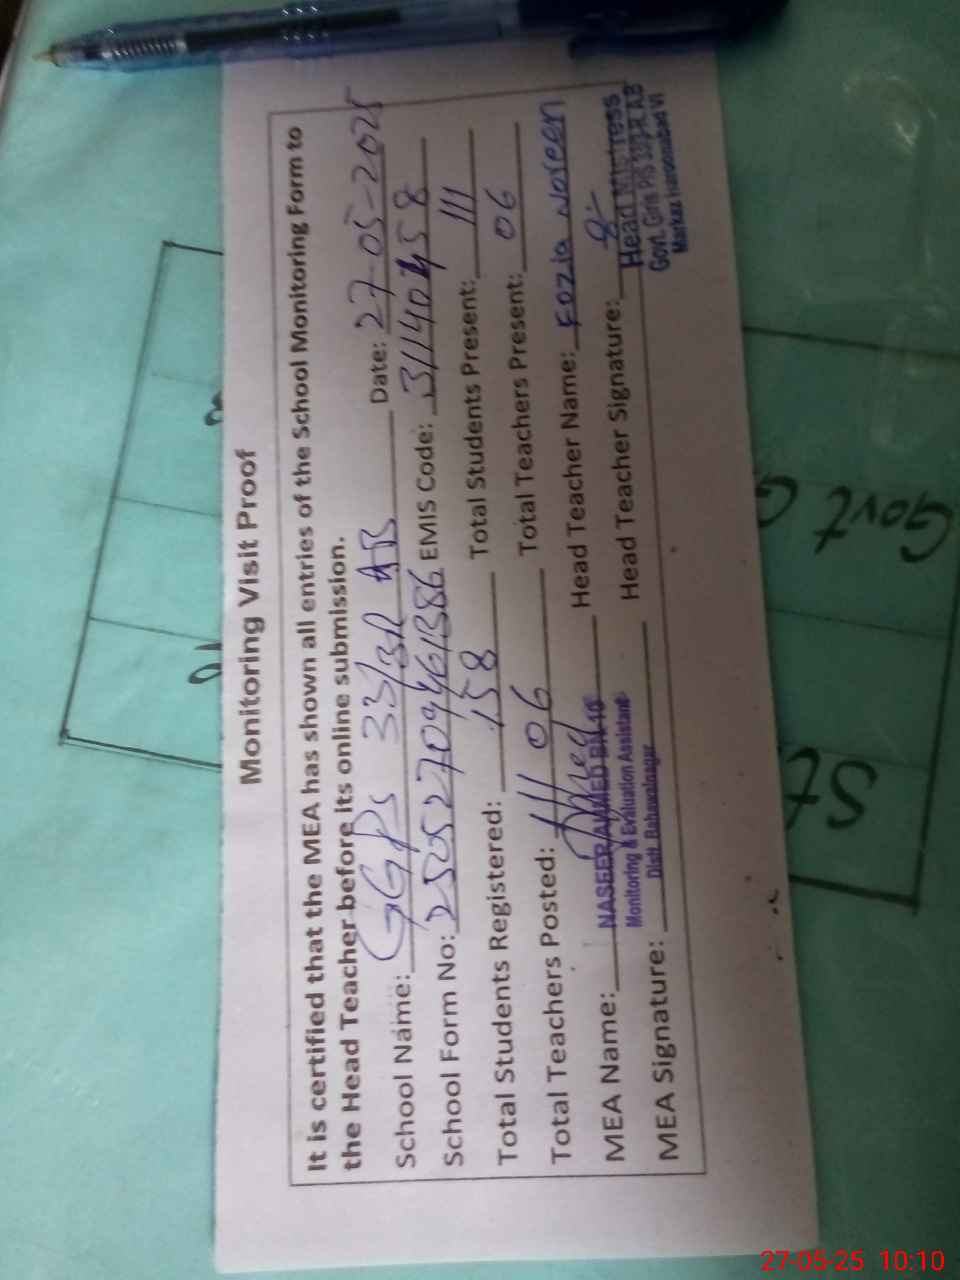 Monitoring Visit Proof
It is certified that the MEA has shown all entries of the School Monitoring Form to
the Head Teacher before its online submission.
School Name: GGPS 33/3R AB Date: 27-05-2025
School Form No: EMIS Code:
Total Students Registered: 158 Total Students Present: 111
Total Teachers Posted: 06 Total Teachers Present: 06
MEA Name: Head Teacher Name: Fozia Noreen
NASEER AHMED
Monitoring & Evaluation Assistant
Distt. Bahawalnagar
MEA Signature: Head Teacher Signature:
Head Mistress
Govt. Girls P/S 33/3R AB
Markaz Haroonabad VI
Govt G
St
27-05-25 10:10